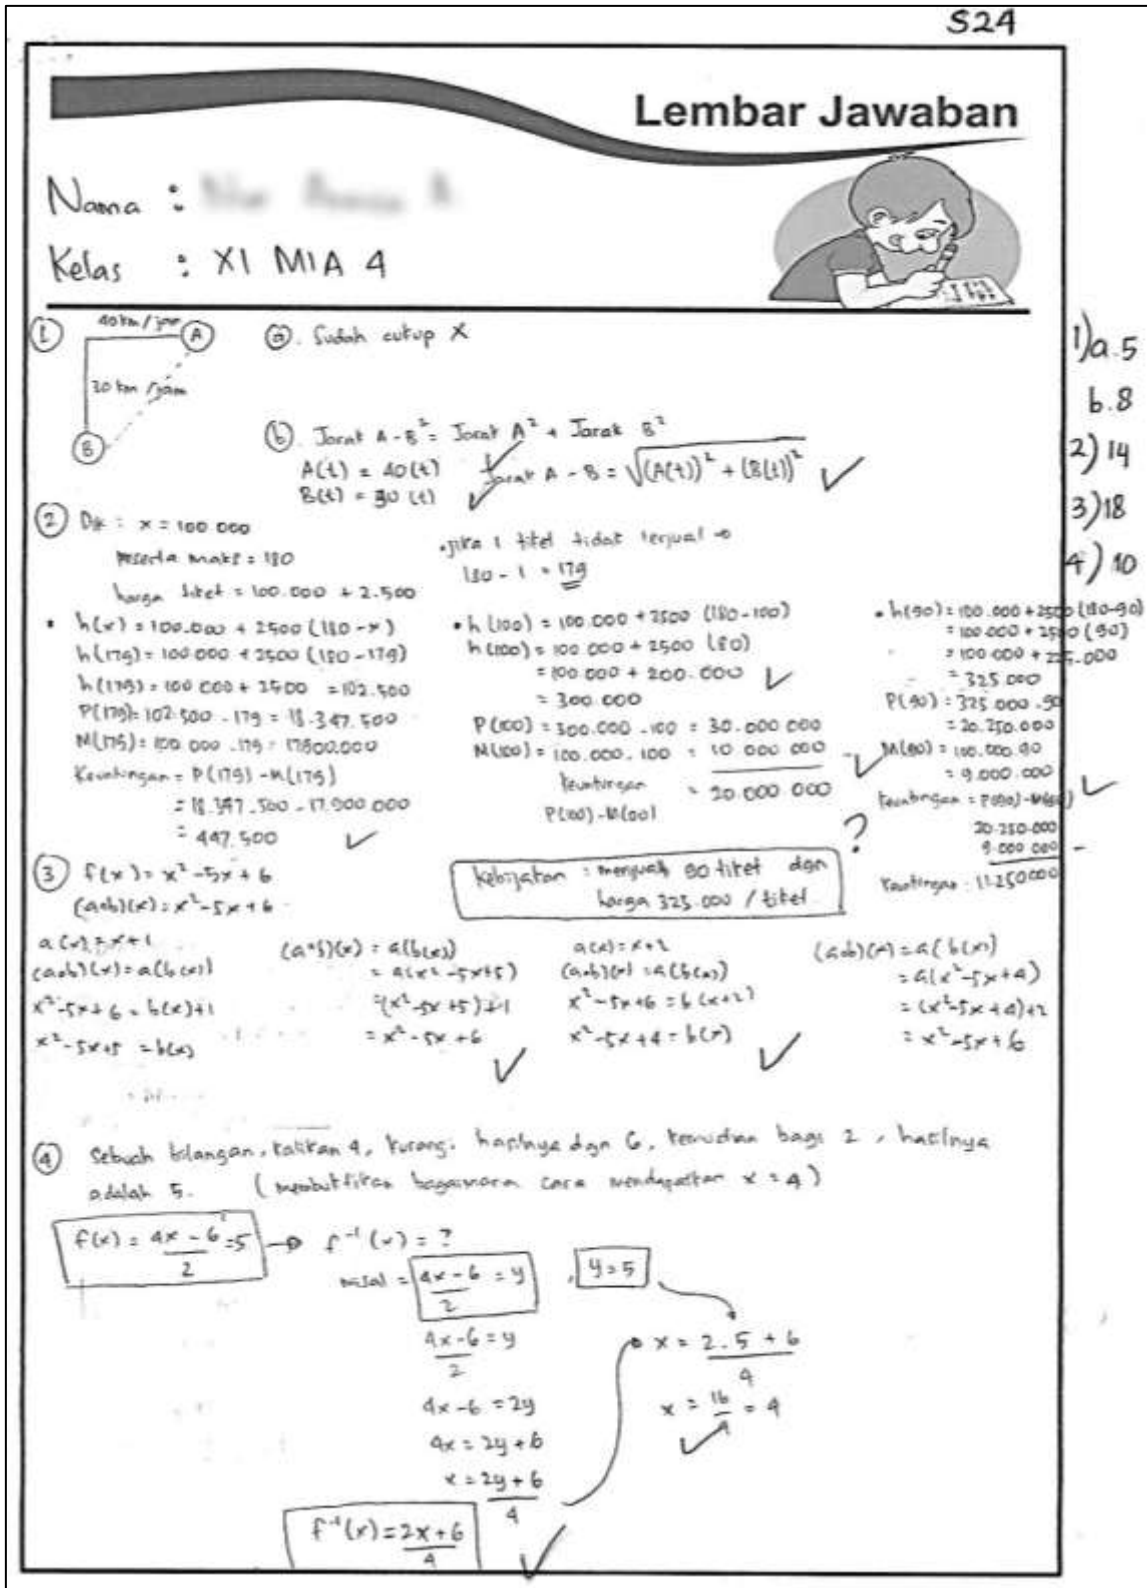 S24
Lembar Jawaban
Nama :
Kelas : XI MIA 4
1)a.5
b.8
2) 14
3)18
4) 10
① 40 km/jam A
30 km/jam
B
ⓐ. Sudah cukup X
ⓑ. Jarak A-B² = Jarak A² + Jarak B²
A(t) = 40(t) ✓ Jarak A - B = √((A(t))² + (B(t))²) ✓
B(t) = 30 (t) ✓
② Dik : x = 100 000
peserta maks = 180
harga tiket = 100.000 + 2.500
• jika 1 tiket tidak terjual →
180 - 1 = 179
• h(x) = 100.000 + 2500 (180 - x)
h(179) = 100.000 + 2500 (180 - 179)
h(179) = 100 000 + 2500 = 102.500
P(179) = 102.500 . 179 = 18.347.500
M(179) = 100 000 . 179 = 17900.000
Keuntungan = P(179) - M(179)
= 18.347.500 - 17.900 000
= 447.500 ✓
• h (100) = 100 000 + 2500 (180 - 100)
h (100) = 100 000 + 2500 (80)
= 100 000 + 200.000 ✓
= 300.000
P(100) = 300.000 . 100 = 30.000 000
M(100) = 100.000 . 100 = 10 000 000 - ✓
keuntungan = 20.000 000
P(100) - M(100)
• h(90) = 100.000 + 2500 (180-90)
= 100 000 + 2500 (90)
= 100 000 + 225.000
= 325 000
P(90) = 325 000 . 90
= 20.250.000
M(90) = 100.000.90
= 9.000.000
keuntungan = P(90) - M(90) ✓
20.250.000
9.000 000 -
Keuntungan : 11.250000
Kebijakan : menjual 90 tiket dgn
harga 325.000 / tiket
?
③ f(x) = x² - 5x + 6
(aob)(x) = x² - 5x + 6
a(x) = x + 1
(aob)(x) = a(b(x))
x² - 5x + 6 = b(x) + 1
x² - 5x + 5 = b(x)
(aob)(x) = a(b(x))
= a(x² - 5x + 5)
= (x² - 5x + 5) + 1
= x² - 5x + 6 ✓
a(x) = x + 2
(aob)(x) = a(b(x))
x² - 5x + 6 = b (x + 2)
x² - 5x + 4 = b(x) ✓
(aob)(x) = a( b(x))
= a(x² - 5x + 4)
= (x² - 5x + 4) + 2
= x² - 5x + 6
④ Sebuah bilangan, kalikan 4, kurangi hasilnya dgn 6, kemudian bagi 2, hasilnya
adalah 5. (membuktikan bagaimana cara mendapatkan x = 4)
f(x) = (4x - 6)/2 = 5 → f⁻¹(x) = ?
misal = (4x - 6)/2 = y , y = 5
(4x - 6)/2 = y
4x - 6 = 2y
4x = 2y + 6
x = (2y + 6)/4
f⁻¹(x) = (2x + 6)/4 ✓
x = (2.5 + 6)/4
x = 16/4 = 4 ✓